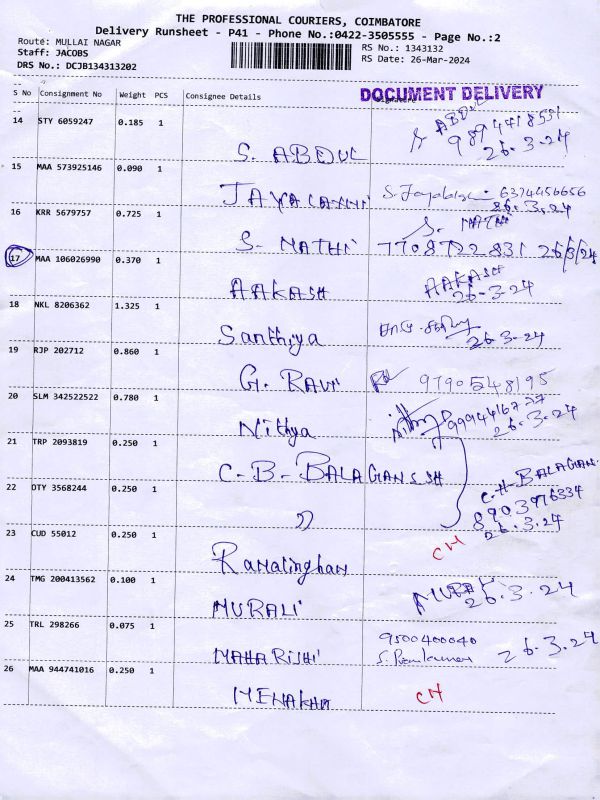 THE PROFESSIONAL COURIERS, COIMBATORE
Delivery Runsheet - P41 - Phone No.:0422-3505555 - Page No.:2
Route: MULLAI NAGAR
RS No.: 1343132
Staff: JACOBS
RS Date: 26-Mar-2024
DRS No.: DCJB134313202
S No Consignment No Weight PCS Consignee Details
DOCUMENT DELIVERY
14 STY 6059247 0.185 1 S. ABDUL ABDUL
26.3.24
15 MAA 573925146 0.090 1 6374456656
26.3.24
16 KRR 5679757 0.725 1 S. NATHI S. NATHI
7708722831 26/3/24
17 MAA 106026990 0.370 1 AAKASH AAKASH
26-3-24
18 NKL 8206362 1.325 1 Santhiya 26.3-24
19 RJP 202712 0.860 1 G. RAVI 9790548195
20 SLM 342522522 0.780 1 Nithya
26.3.24
21 TRP 2093819 0.250 1 C-B-BALAGANESH
22 OTY 3568244 0.250 1 8903976334
26.3.24
23 CUD 55012 0.250 1 CH
24 TMG 200413562 0.100 1 MURALI MURALI
26.3.24
25 TRL 298266 0.075 1 MAHARISHI 9500400040
26.3.24
26 MAA 944741016 0.250 1 MENAKHA CH